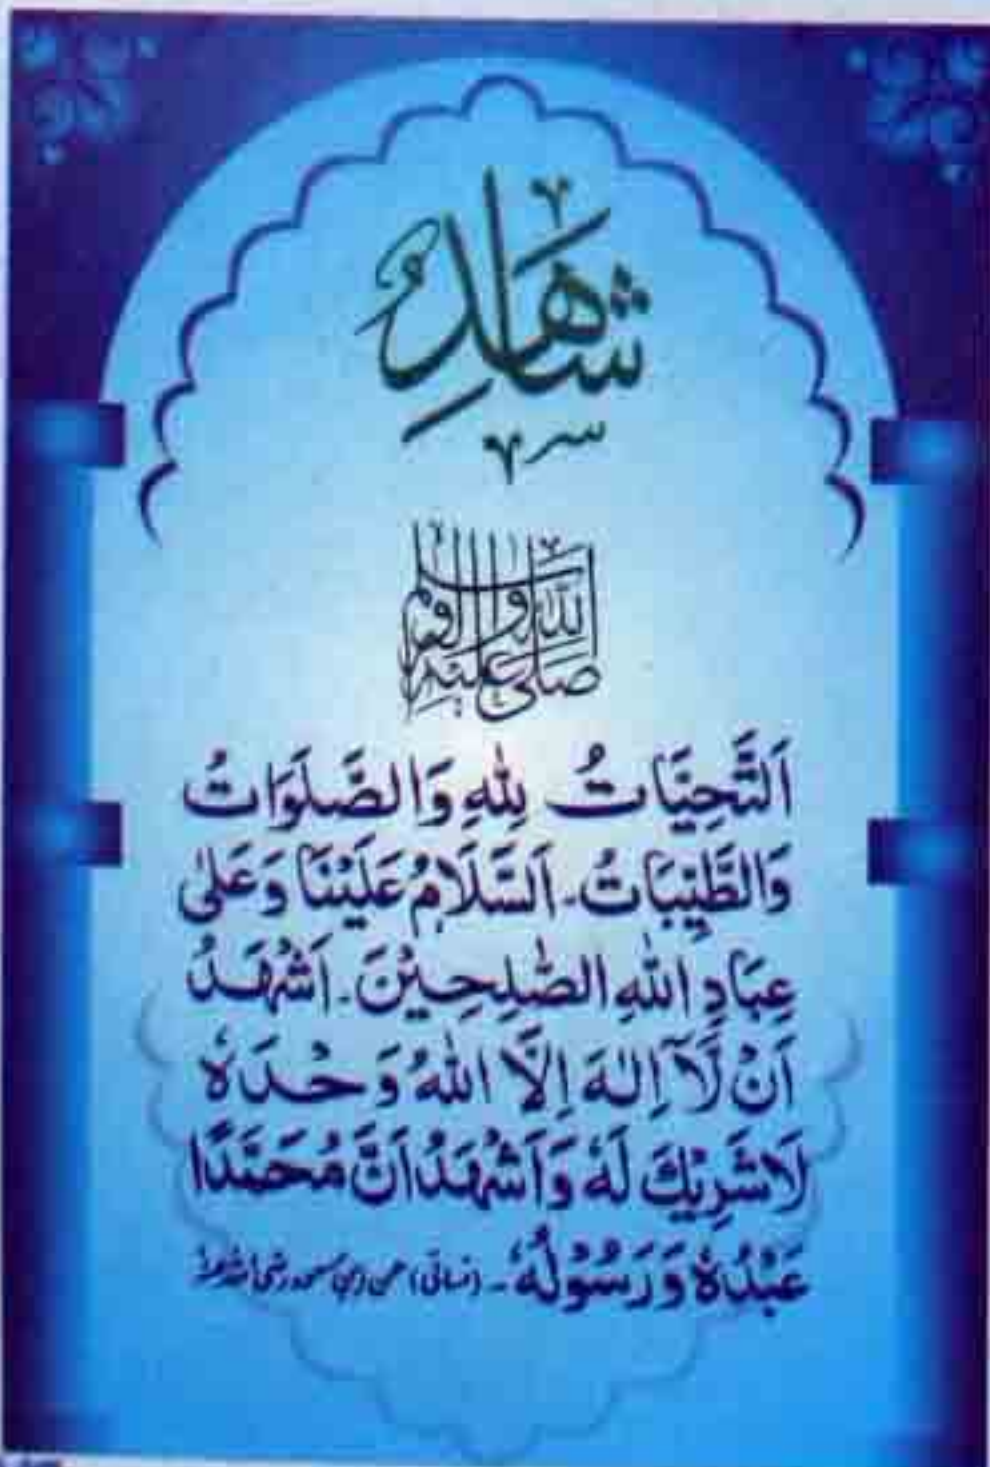 شَاهِدٌ
صَلَّى اللهُ عَلَيْهِ وَآلِهِ وَسَلَّم
اَلتَّحِيَّاتُ لِلّٰهِ وَالصَّلَوَاتُ
وَالطَّيِّبَاتُ۔ اَلسَّلَامُ عَلَيْنَا وَعَلٰى
عِبَادِ اللّٰهِ الصّٰلِحِيْنَ۔ اَشْهَدُ
اَنْ لَّآ اِلٰهَ اِلَّا اللّٰهُ وَحْدَهٗ
لَا شَرِيْكَ لَهٗ وَاَشْهَدُ اَنَّ مُحَمَّدًا
عَبْدُهٗ وَرَسُوْلُهٗ۔ (نسائی) عن ابن مسعود رضی اللہ عنہ